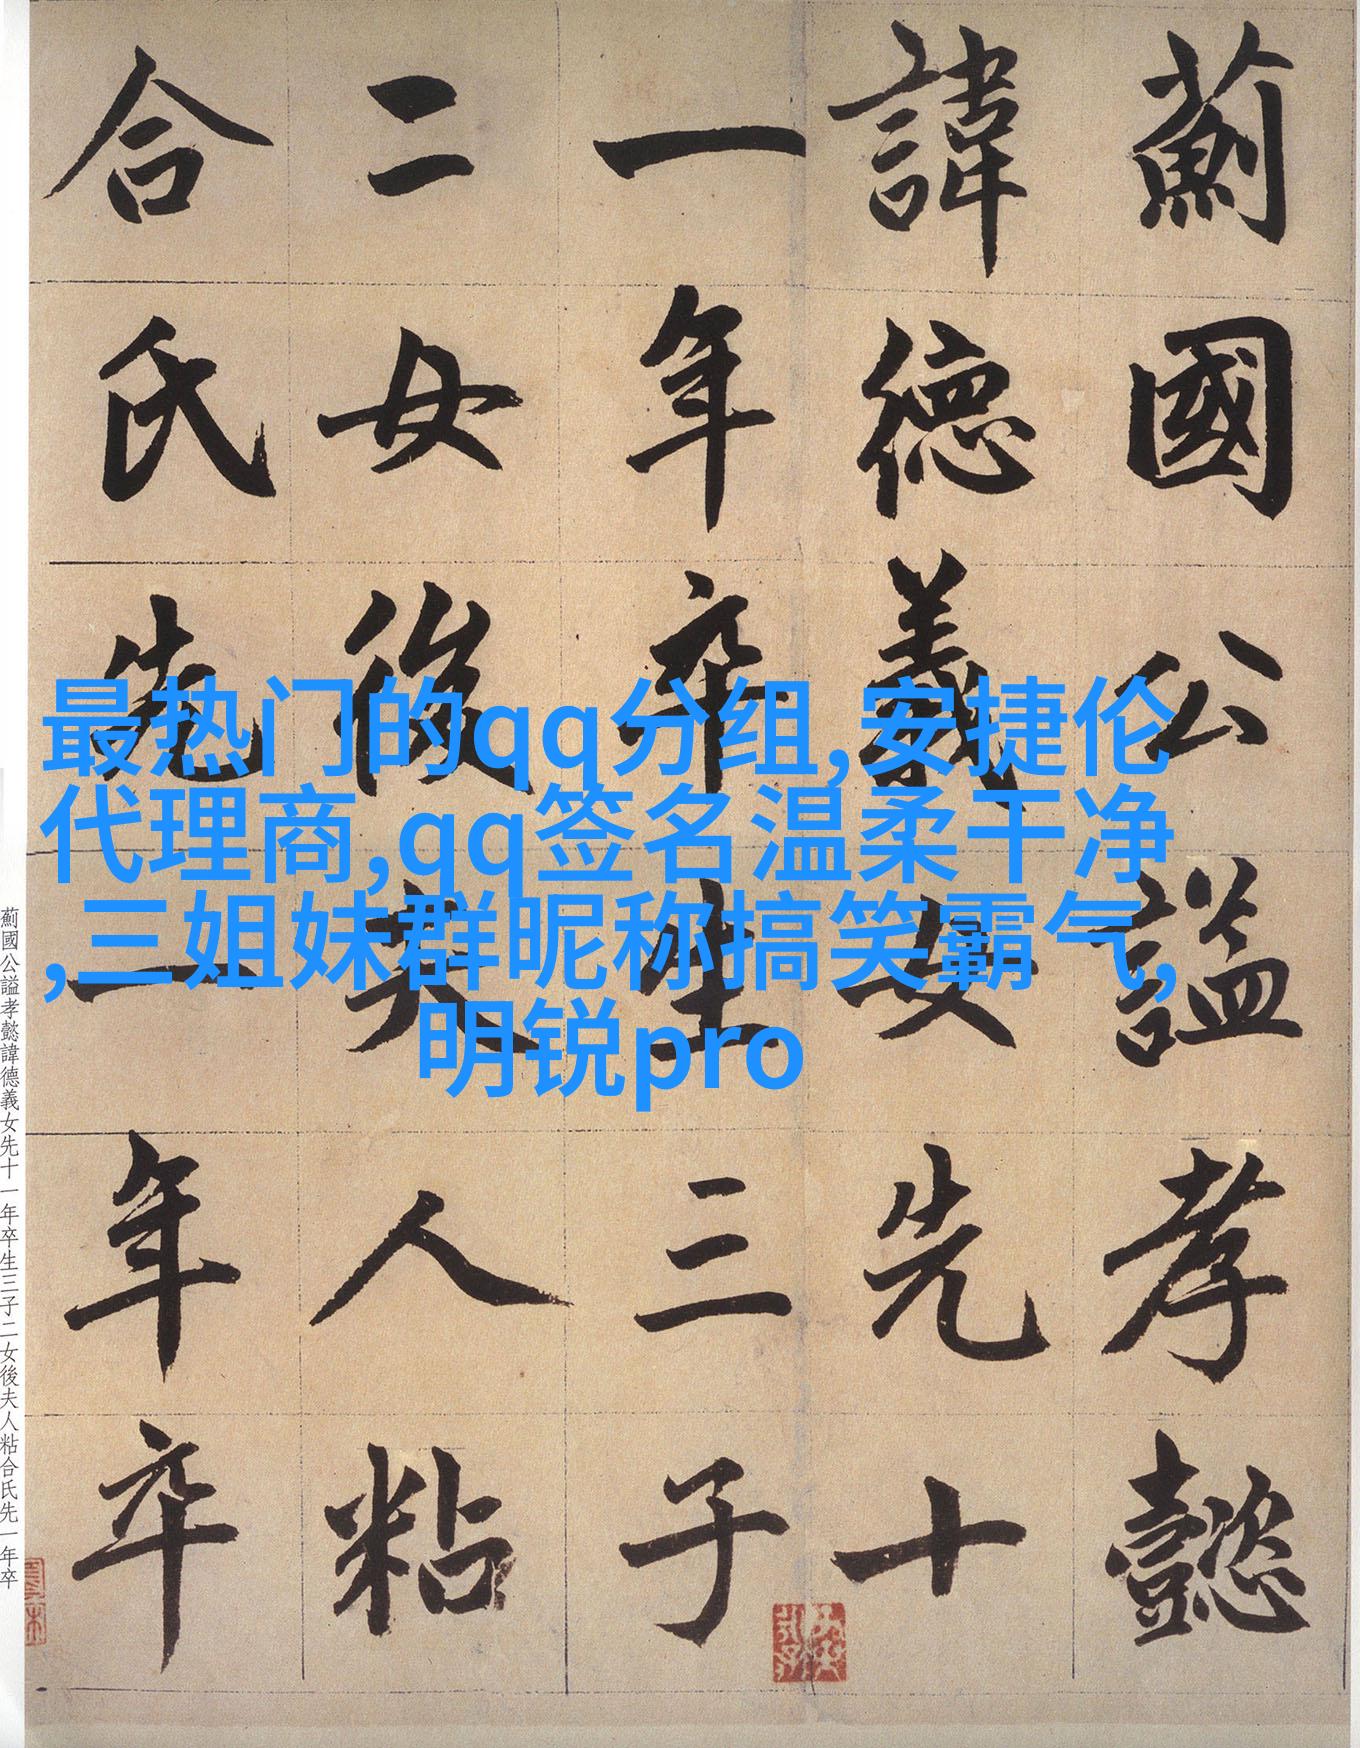 蓟國公謚孝懿
諱德義女先十
一年卒生三子
二女後夫人粘
合氏先一年卒
最热门的qq分组,安捷伦
代理商,qq签名温柔干净
,三姐妹群昵称搞笑霸气,
明锐pro
薊國公謚孝懿諱德義女先十一年卒生三子二女後夫人粘合氏先一年卒